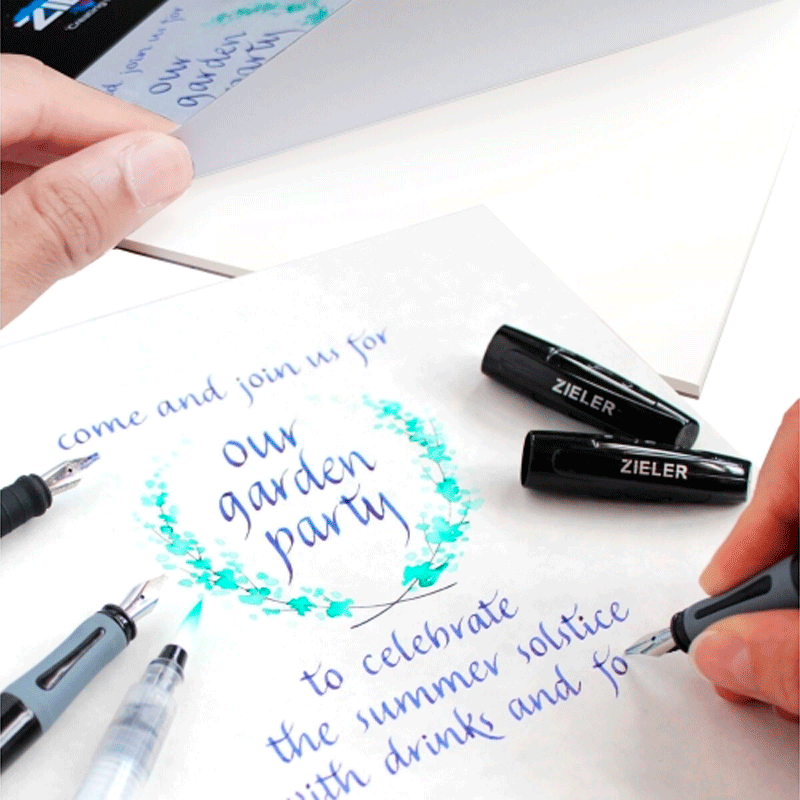 and join us for
our
garden
party
come and join us for
our
garden
party
ZIELER
ZIELER
to celebrate
the summer solstice
with drinks and fo